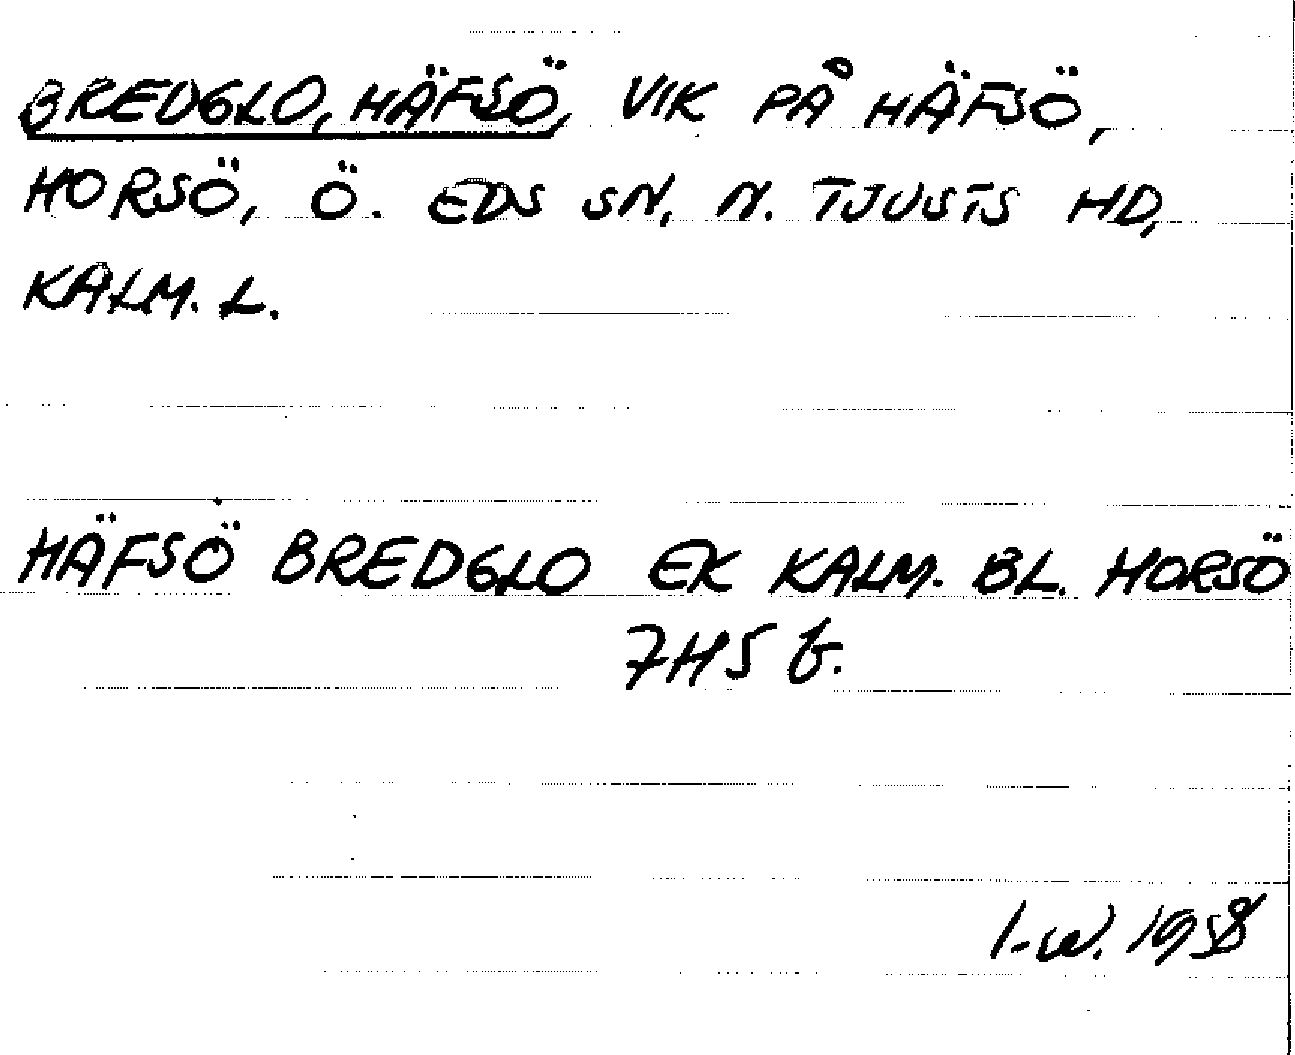 BREDGLO, HÄFSÖ, VIK PÅ HÄFSÖ,
HORSÖ, Ö. EDS SN, N. TJUSTS HD,
KALM. L.
HÄFSÖ BREDGLO EK KALM. BL. HORSÖ
7H5 b.
I-w. 1958